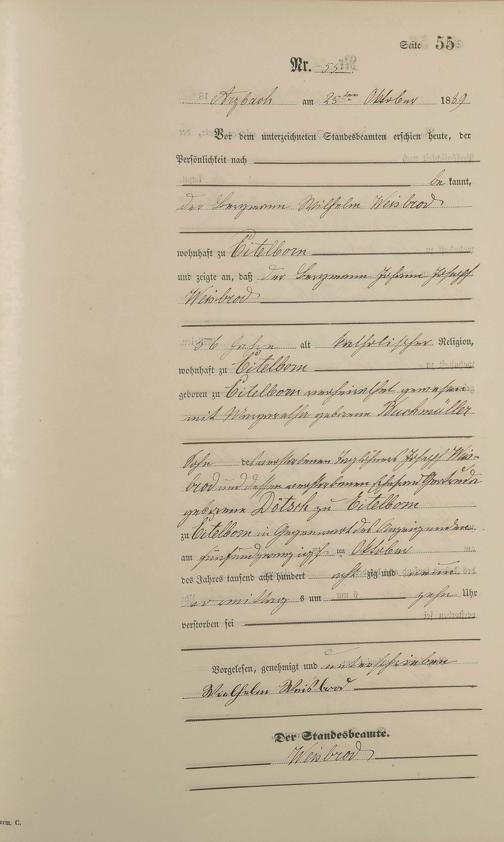 Seite 55
Nr. 55
Arzbach am 25ten Oktober 1889
Vor dem unterzeichneten Standesbeamten erschien heute, der
Persönlichkeit nach
be kannt,
der Bergmann Wilhelm Weisbrod
wohnhaft zu Eitelborn
und zeigte an, daß der Bergmann Johann Joseph
Weisbrod
56 Jahre alt katholischer Religion,
wohnhaft zu Eitelborn
geboren zu Eitelborn verheirathet gewesen
mit Margaretha geborene Wachmüller
Sohn des verstorbenen Taglöhners Joseph Weis-
brod und dessen verstorbenen Ehefrau Gertruda
geborene Dötsch zu Eitelborn
zu Eitelborn in Gegenwart des Anzeigenden
am fünfundzwanzigsten Oktober
des Jahres tausend acht hundert acht zig und neun
vormittag s um zehn Uhr
verstorben sei
Vorgelesen, genehmigt und unterschrieben
Wilhelm Weisbrod
Der Standesbeamte.
Weisbrod